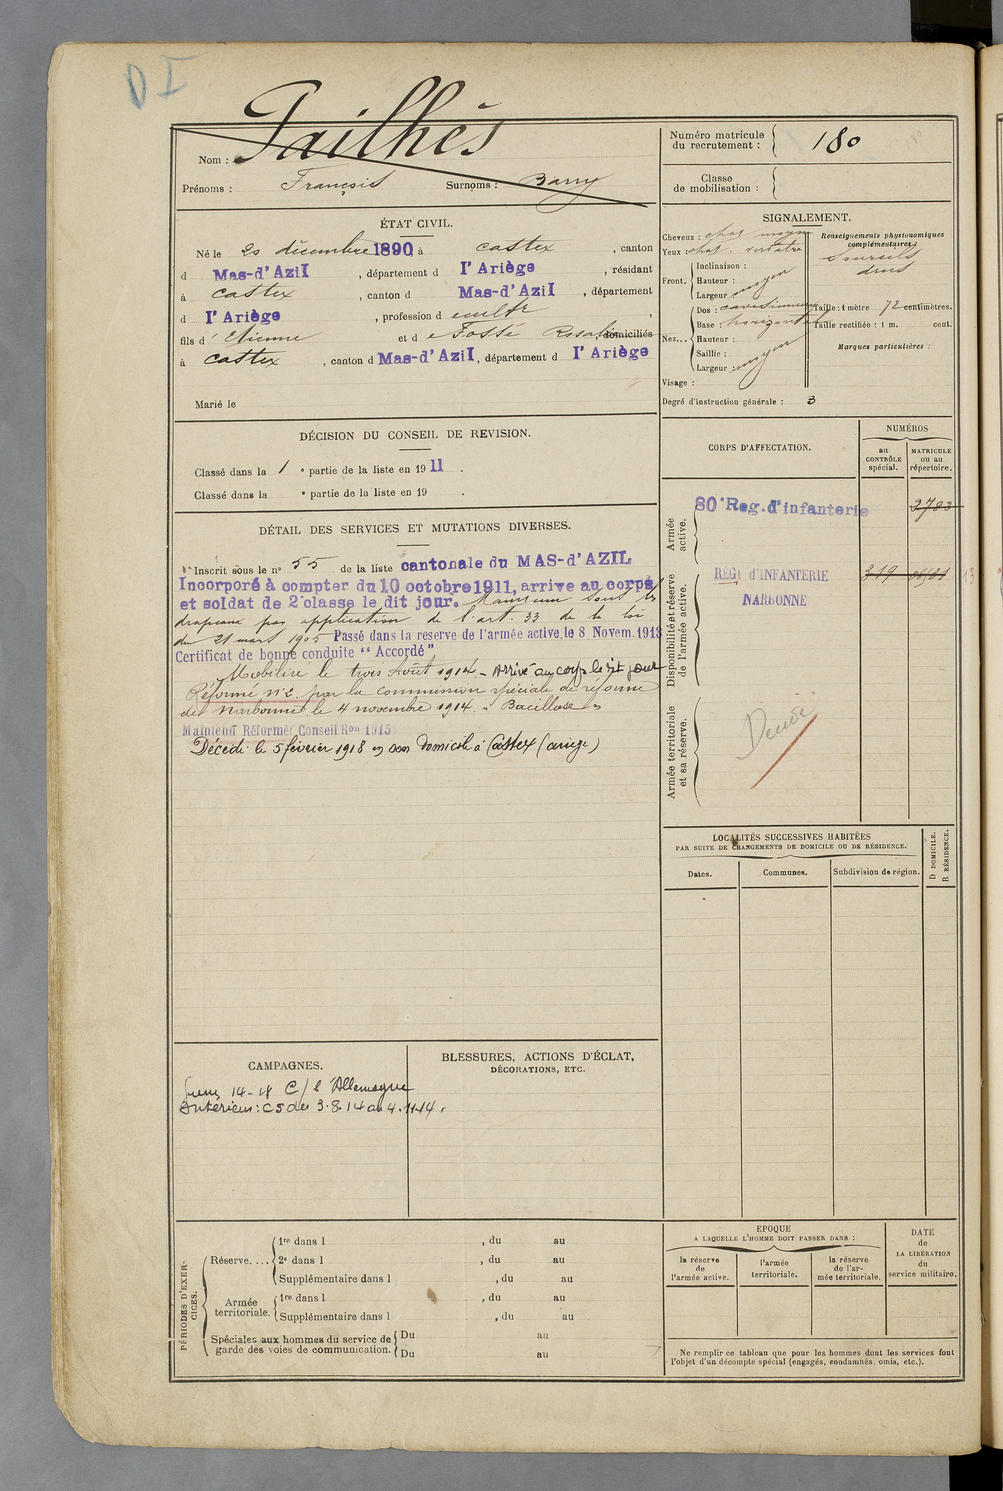 D I
Nom : Pailhès
Prénoms : François Surnoms : Barry
Numéro matricule du recrutement : 180
Classe de mobilisation :
ÉTAT CIVIL.
Né le 20 décembre 1890, à Castex, canton
d Mas-d'Azil, département d l'Ariège, résidant
à Castex, canton d Mas-d'Azil, département
d l'Ariège, profession d cultr,
fils d' Etienne et de Fossé Rosalie, domiciliés
à Castex, canton d Mas-d'Azil, département d l'Ariège
Marié le
SIGNALEMENT.
Cheveux : chat moyen
Yeux chat. verdâtre
Front. Inclinaison :
Hauteur :
Largeur moyen
Nez... Dos :
Base : horizontal
Hauteur :
Saillie :
Largeur : moyen
Visage :
Renseignements physionomiques complémentaires :
Sourcils
drus
Taille : 1 mètre 72 centimètres.
Taille rectifiée : 1 m. cent.
Marques particulières :
Degré d'instruction générale : 3
DÉCISION DU CONSEIL DE REVISION.
Classé dans la 1 e partie de la liste en 1911.
Classé dans la e partie de la liste en 19 .
DÉTAIL DES SERVICES ET MUTATIONS DIVERSES.
Inscrit sous le n° 55 de la liste cantonale du MAS-d'AZIL
Incorporé à compter du 10 octobre 1911, arrive au corps
et soldat de 2e classe le dit jour. Maintenu sous les
drapeaux par application de l'art. 33 de la loi
du 21 mars 1905 Passé dans la reserve de l'armée active, le 8 Novem. 1913
Certificat de bonne conduite "Accordé"
Mobilisé le trois Août 1914 - Arrivé au corps le dit jour
Réformé n° 2 par la commission spéciale de réforme
de Narbonne le 4 novembre 1914. "Bacillose"
Maintenu Réformé Conseil Ron 1915
Décédé le 5 février 1918 en son domicile à Castex (ariège)
CORPS D'AFFECTATION.
NUMÉROS
au CONTRÔLE spécial.
MATRICULE ou au répertoire.
Armée active.
80e Reg. d'infanterie
2783
Disponibilité et réserve de l'armée active.
RÉGt d'INFANTERIE
NARBONNE
319
13
Armée territoriale et sa réserve.
LOCALITÉS SUCCESSIVES HABITÉES
PAR SUITE DE CHANGEMENTS DE DOMICILE OU DE RÉSIDENCE.
Dates.
Communes.
Subdivision de région.
D DOMICILE.
R RÉSIDENCE.
CAMPAGNES.
14-18 C/ l'Allemagne
Intérieur : CS du 3.8.14 au 4.11.14.
BLESSURES, ACTIONS D'ÉCLAT,
DÉCORATIONS, ETC.
PÉRIODES D'EXERCICES.
Réserve.... 1re dans l , du au
2e dans l , du au
Supplémentaire dans l , du au
Armée territoriale. 1re dans l , du au
Supplémentaire dans l , du au
Spéciales aux hommes du service de garde des voies de communication. Du au
Du au
EPOQUE
A LAQUELLE L'HOMME DOIT PASSER DANS :
la réserve de l'armée active.
l'armée territoriale.
la réserve de l'armée territoriale.
DATE
de
LA LIBÉRATION
du
service militaire.
Ne remplir ce tableau que pour les hommes dont les services font
l'objet d'un décompte spécial (engagés, condamnés, omis, etc.).